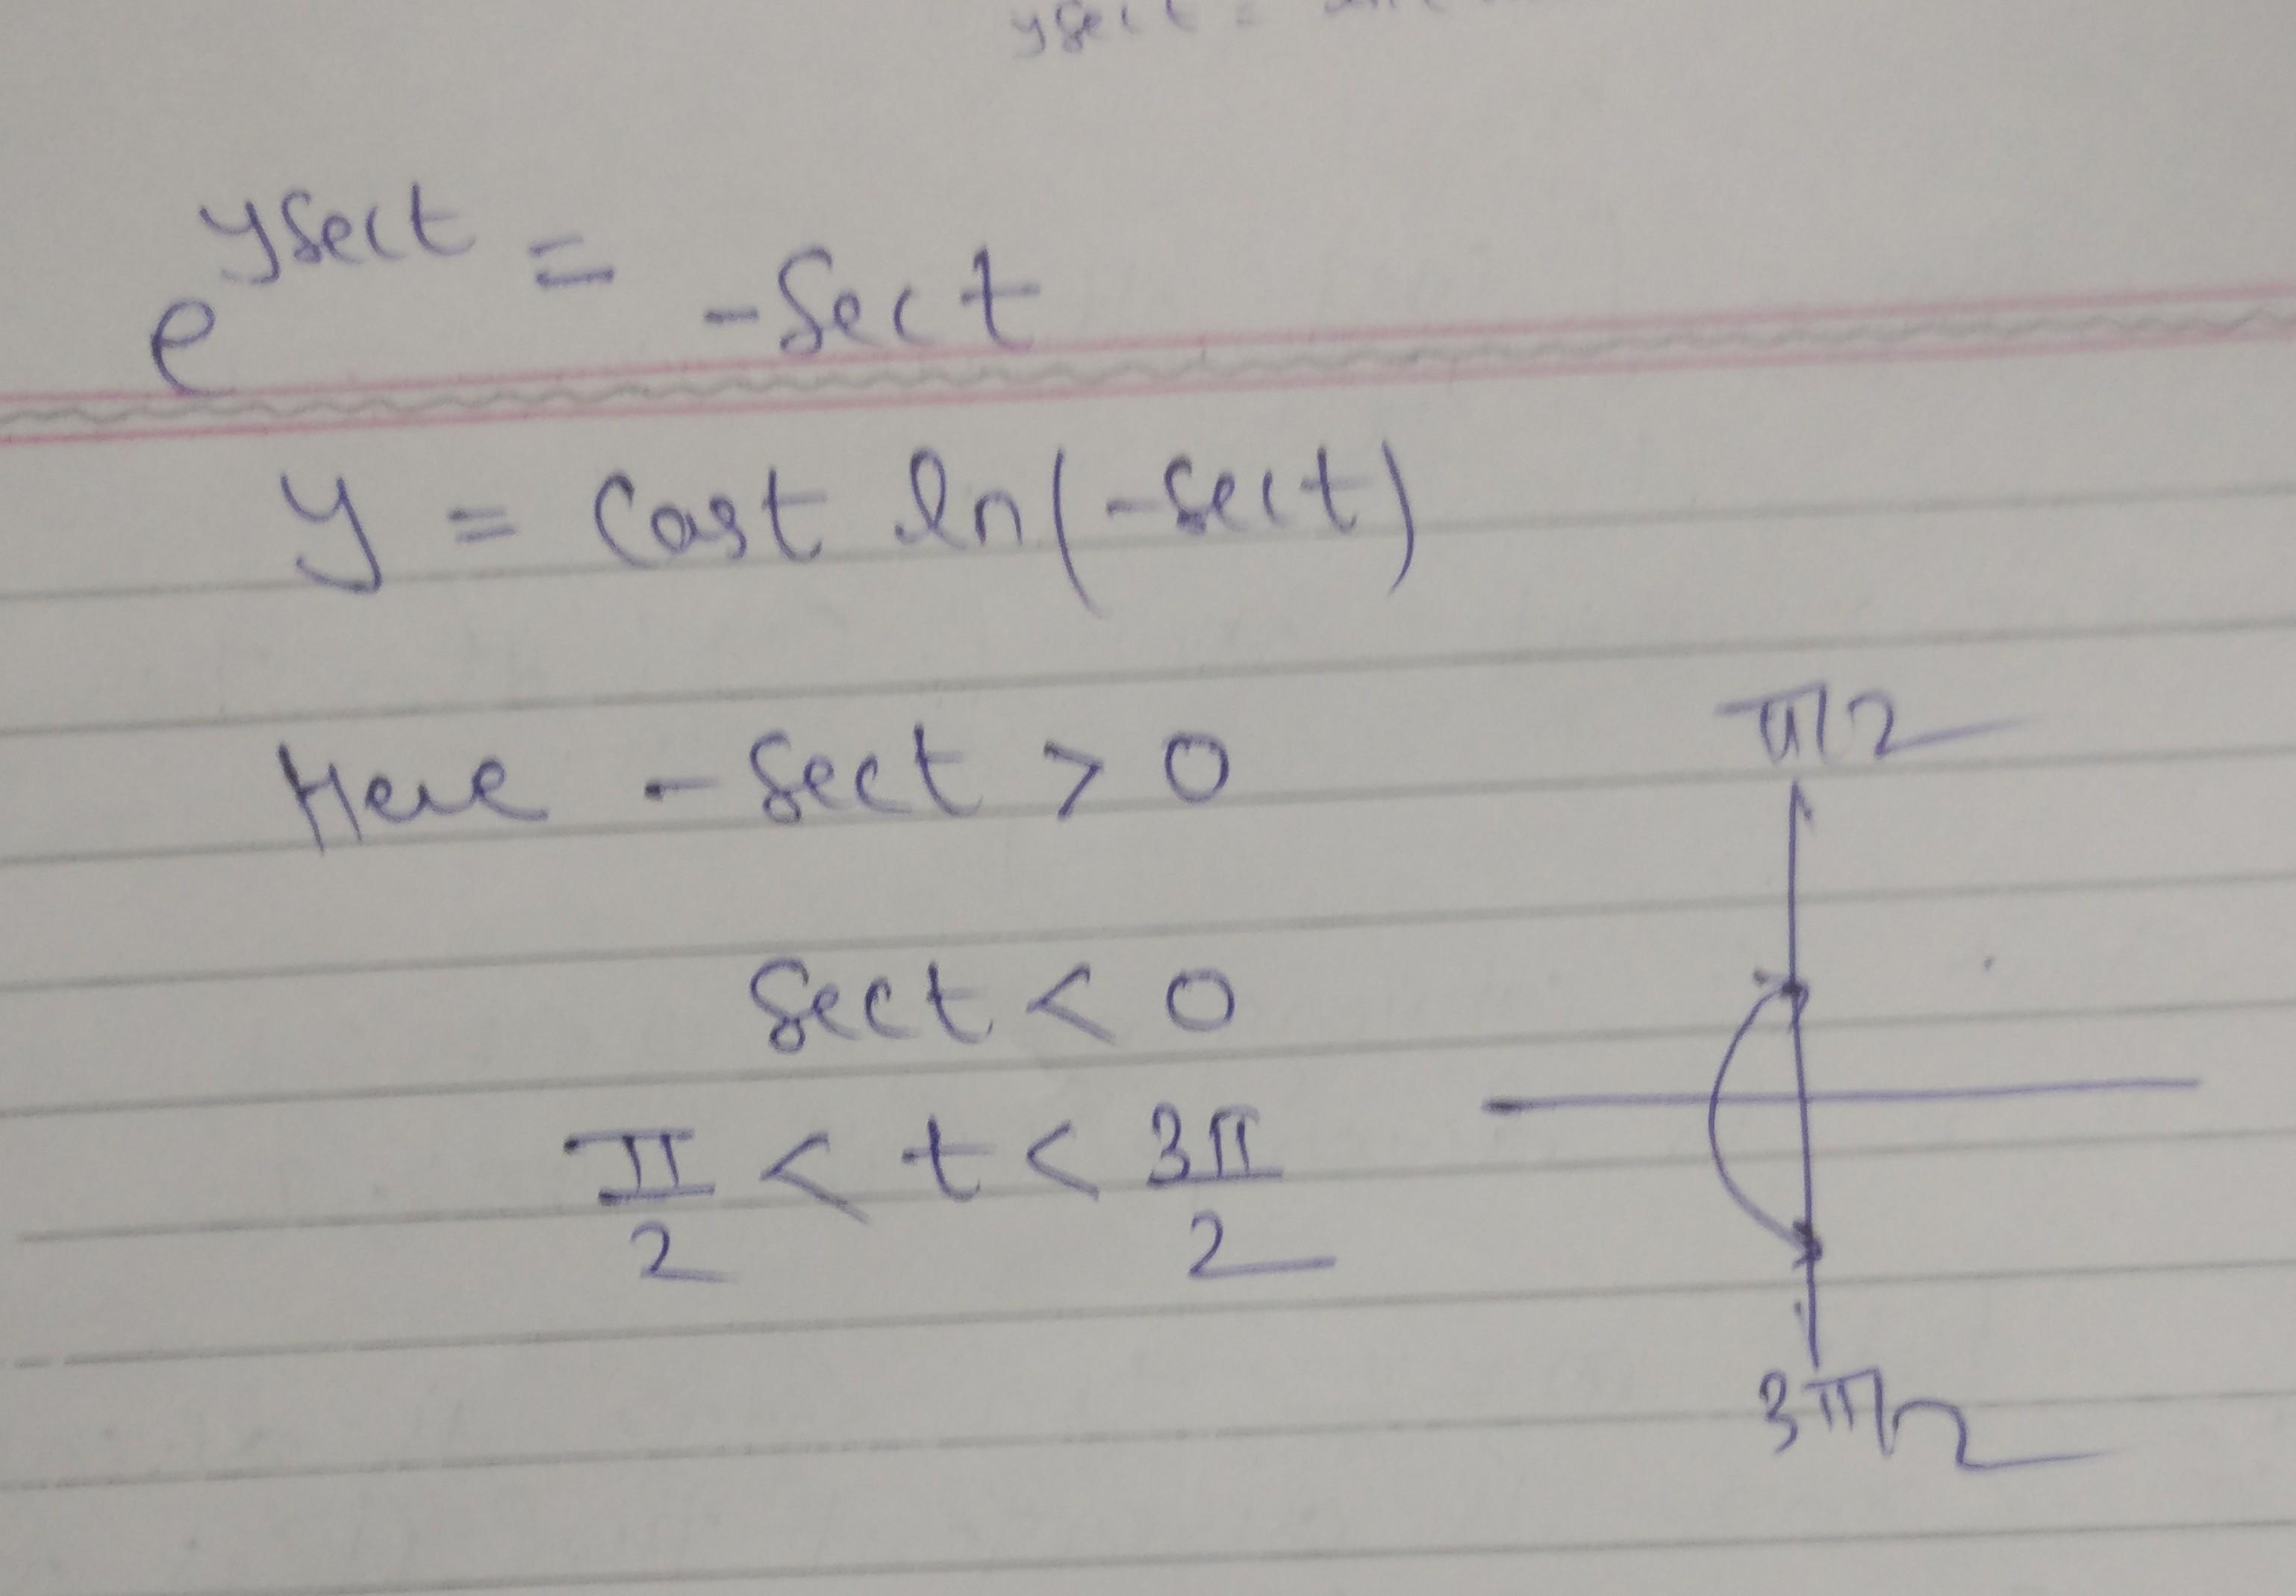 y sect =
e^{y sect} = -sect
y = cost ln(-sect)
Here -sect > 0
π/2
sect < 0
π/2 < t < 3π/2
3π/2